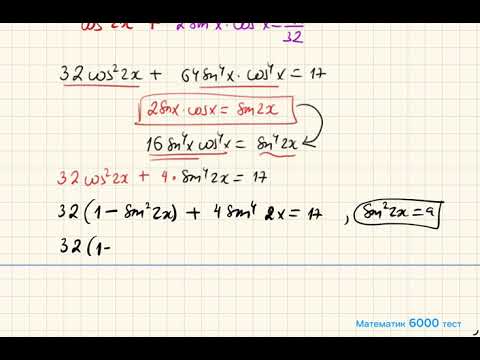 cos²2x + 2sin⁴x·cos⁴x = 32
32cos²2x + 64sin⁴x·cos⁴x = 17
2sinx·cosx = sin2x
16sin⁴x cos⁴x = sin⁴2x
32cos²2x + 4·sin⁴2x = 17
32(1 - sin²2x) + 4sin⁴2x = 17, sin²2x = a
32(1-
Математик 6000 тест